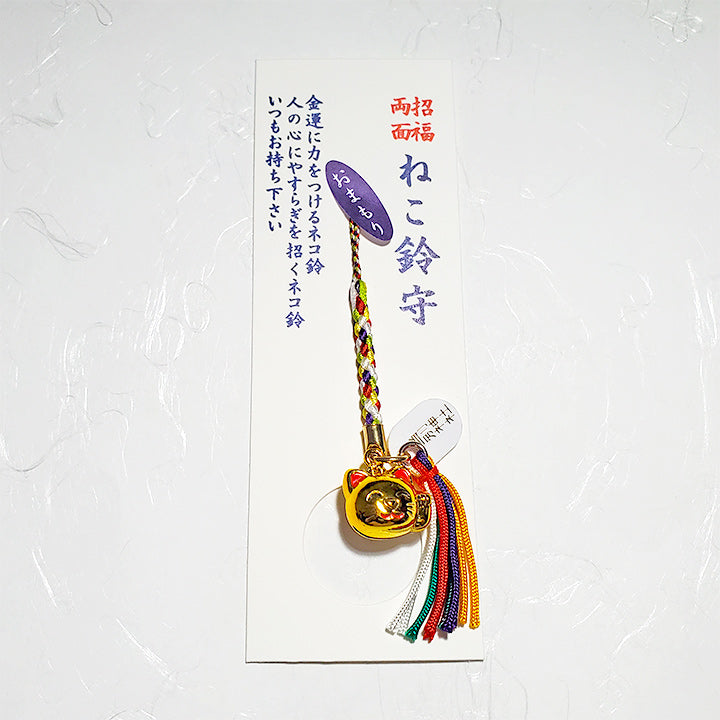 招福
両面
ねこ鈴守
おまもり
金運に力をつけるネコ鈴
人の心にやすらぎを招くネコ鈴
いつもお持ち下さい